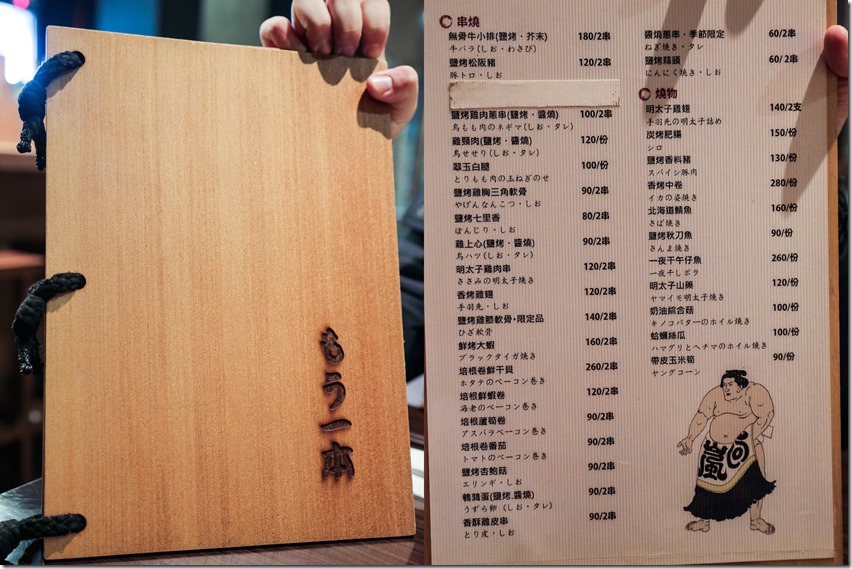 もう一本
串燒
無骨牛小排(鹽烤・芥末) 180/2串
牛バラ(しお・わさび)
鹽烤松阪豬 120/2串
豚トロ・しお
鹽烤雞肉蔥串(鹽烤・醬燒) 100/2串
鳥もも肉のネギマ(しお・タレ)
雞頸肉(鹽烤・醬燒) 120/份
鳥せせり(しお・タレ)
翠玉白腿 100/份
とりもも肉の玉ねぎのせ
鹽烤雞胸三角軟骨 90/2串
やげんなんこつ・しお
鹽烤七里香 80/2串
ぼんじり・しお
雞上心(鹽烤・醬燒) 90/2串
鳥ハツ(しお・タレ)
明太子雞肉串 120/2串
ささみの明太子焼き
香烤雞翅 120/2串
手羽先・しお
鹽烤雞膝軟骨・限定品 140/2串
ひざ軟骨
鮮烤大蝦 160/2串
ブラックタイガ焼き
培根卷鮮干貝 260/2串
ホタテのベーコン巻き
培根鮮蝦卷 120/2串
海老のベーコン巻き
培根蘆筍卷 90/2串
アスパラベーコン巻き
培根卷番茄 90/2串
トマトのベーコン巻き
鹽烤杏鮑菇 90/2串
エリンギ・しお
鵪鶉蛋(鹽烤.醬燒) 90/2串
うずら卵(しお・タレ)
香酥雞皮串 90/2串
とり皮・しお
醬燒蔥串・季節限定 60/2串
ねぎ焼き・タレ
鹽烤蒜頭 60/2串
にんにく焼き・しお
燒物
明太子雞翅 140/2支
手羽先の明太子詰め
炭烤肥腸 150/份
シロ
鹽烤香料豬 130/份
スパイシ豚肉
香烤中卷 280/份
イカの姿焼き
北海道鯖魚 160/份
さば焼き
鹽烤秋刀魚 90/份
さんま焼き
一夜干午仔魚 260/份
一夜干しボラ
明太子山藥 120/份
ヤマイモ明太子焼き
奶油綜合菇 100/份
キノコバターのホイル焼き
蛤蠣絲瓜 100/份
ハマグリとヘチマのホイル焼き
帶皮玉米筍 90/份
ヤングコーン